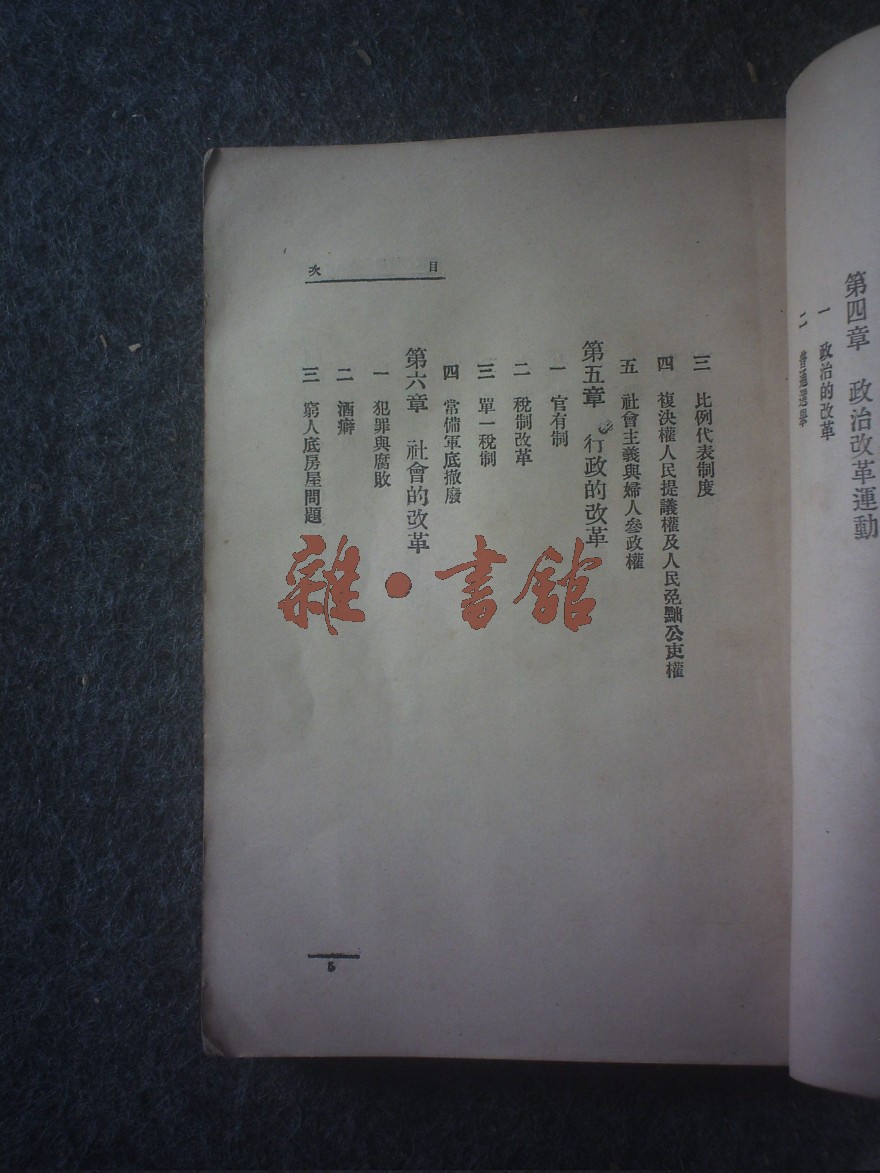 第四章　政治改革運動
一　政治的改革
二　普通選舉
目次
三　比例代表制度
四　複決權人民提議權及人民免黜公吏權
五　社會主義與婦人參政權
第五章　行政的改革
一　官有制
二　稅制改革
三　單一稅制
四　常備軍底撤廢
第六章　社會的改革
一　犯罪與腐敗
二　酒癖
三　窮人底房屋問題
5
雜·書館